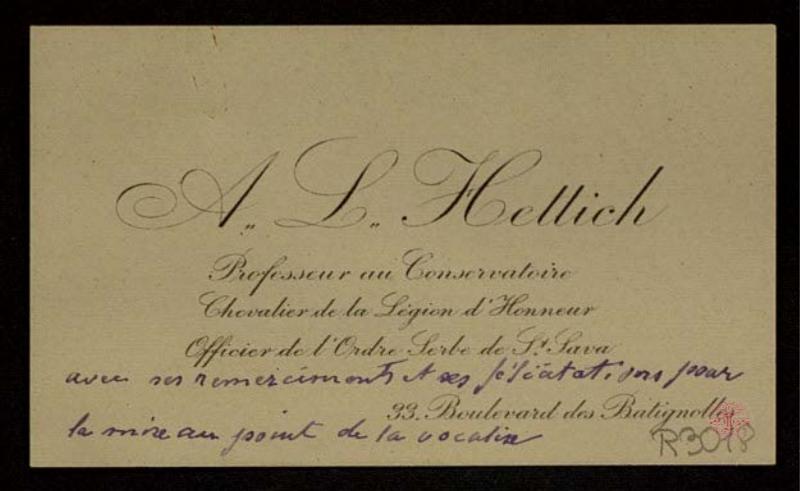 A. L. Hettich
Professeur au Conservatoire
Chevalier de la Légion d'Honneur
Officier de l'Ordre Serbe de St Sava
avec ses remerciments et ses félicitations pour
33. Boulevard des Batignolles
la mise au point de la vocalise
R3018